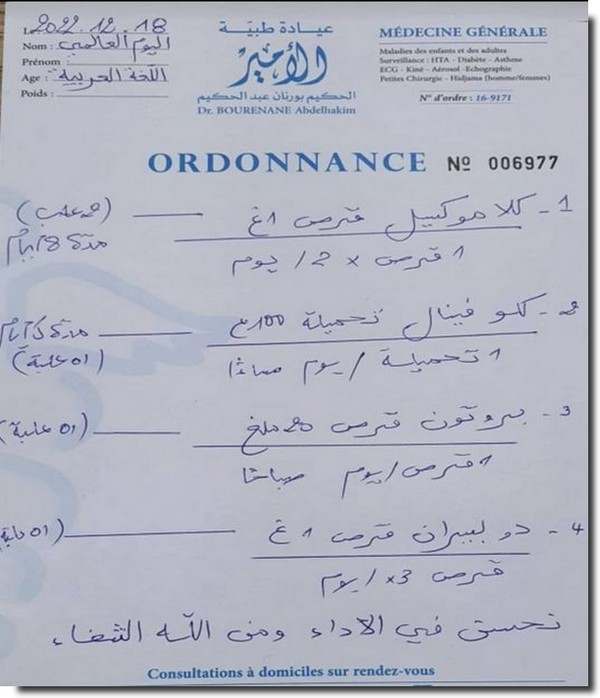 Le 2022.12.18
Nom : اليوم العالمي
Prénom :
Age : اللغة العربية
Poids :
عيادة طبية
الأمير
الحكيم بورنان عبد الحكيم
Dr. BOURENANE Abdelhakim
MÉDECINE GÉNÉRALE
Maladies des enfants et des adultes
Surveillance : HTA - Diabète - Asthme
ECG - Kiné - Aérosol - Echographie
Petites Chirurgie - Hidjama (homme/femmes)
N° d'ordre : 16-9171
ORDONNANCE Nº 006977
1 - كلاموكسيل قرص 1غ (علب)
مدة 8 أيام
1 قرص × 2 / يوم
2 - كلوفينال تحميلة 100مغ مدة 5 أيام
1 تحميلة / يوم مساءًا (01 علبة)
3 - بروتون قرص 20 ملغ (01 علبة)
1 قرص / يوم صباحًا
4 - دوليبران قرص 1غ (01 علبة)
قرص 3× / يوم
تحسن في الأداء ومن الله الشفاء
Consultations à domiciles sur rendez-vous